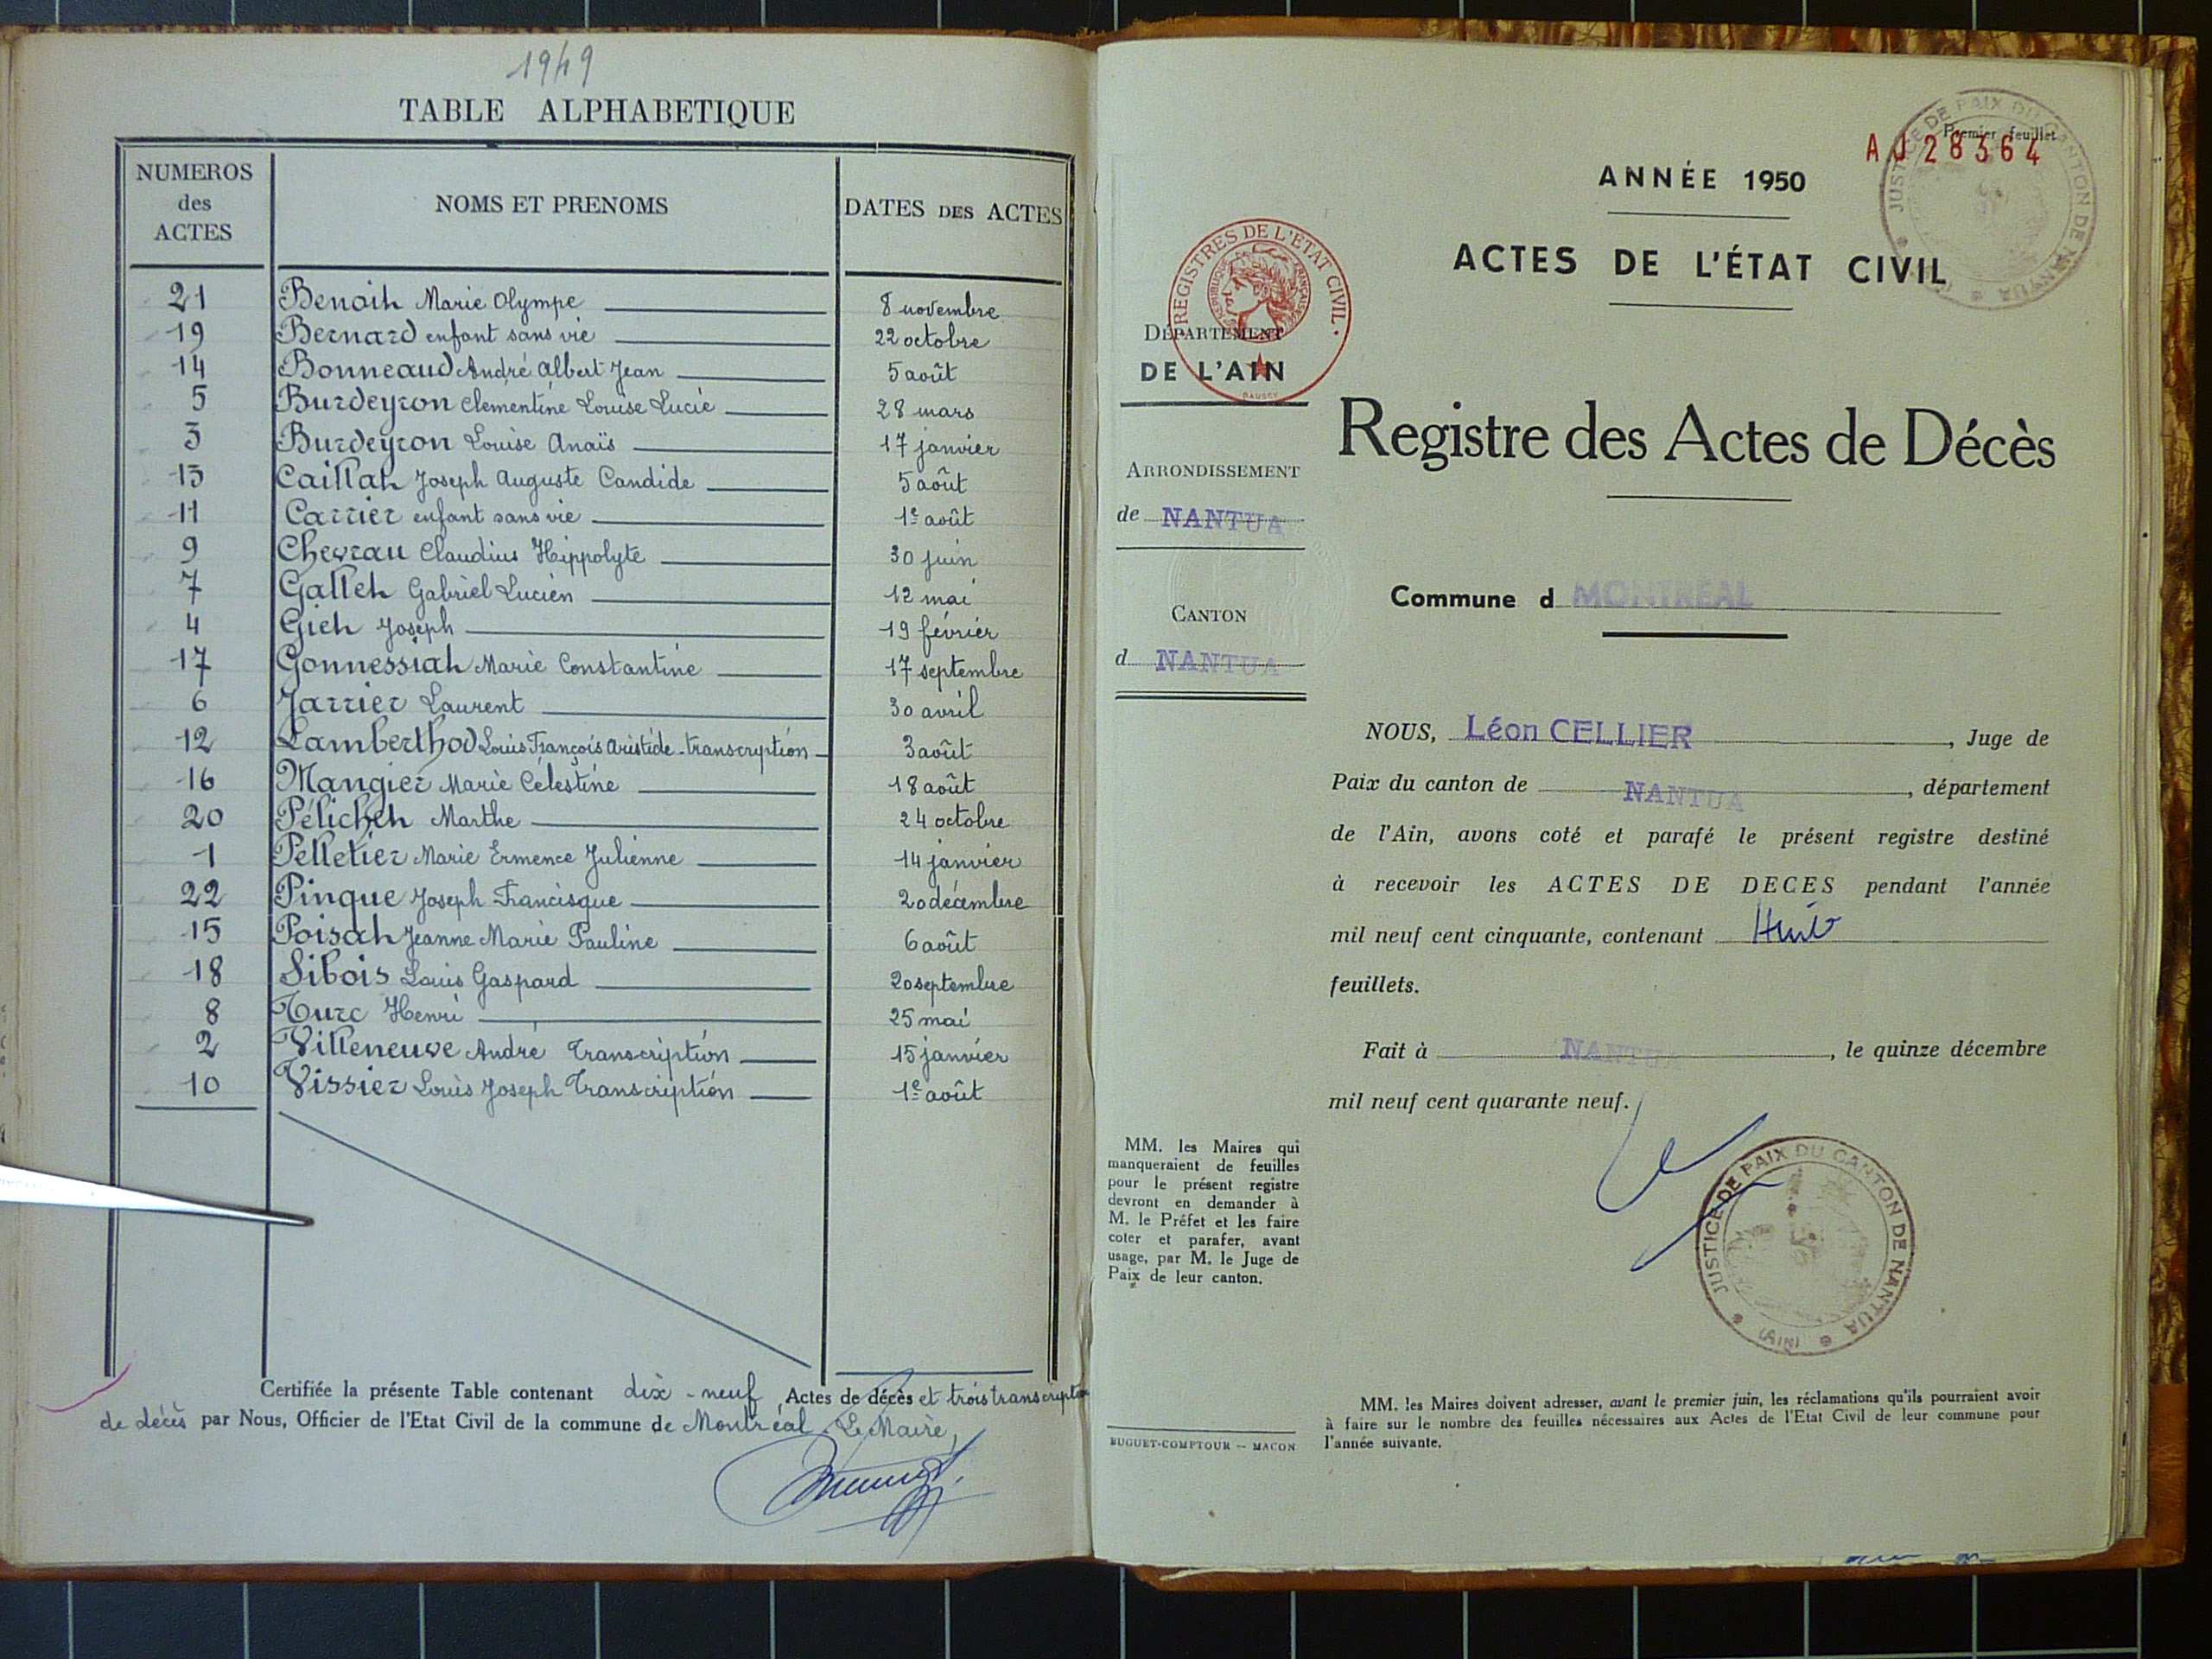 1949
TABLE ALPHABETIQUE
NUMEROS des ACTES NOMS ET PRENOMS DATES DES ACTES
21 Benoit Marie Olympe 8 novembre
19 Bernard enfant sans vie 22 octobre
14 Bonneaud André Albert Jean 5 août
5 Burdeyron Clémentine Louise Lucie 28 mars
3 Burdeyron Louise Anaïs 17 janvier
13 Caillat Joseph Auguste Candide 5 août
11 Carrier enfant sans vie 1e août
9 Chevrau Claudius Hippolyte 30 juin
7 Gallet Gabriel Lucien 12 mai
4 Giet Joseph 19 février
17 Gonnessiat Marie Constantine 17 septembre
6 Jarrier Laurent 30 avril
12 Lamberthod Louis François Aristide - transcription 3 août
16 Mangier Marie Célestine 18 août
20 Pélichet Marthe 24 octobre
1 Pelletier Marie Ermence Julienne 14 janvier
22 Pinque Joseph Francisque 20 décembre
15 Poisat Jeanne Marie Pauline 6 août
18 Sibois Louis Gaspard 20 septembre
8 Turc Henri 25 mai
2 Villeneuve André Transcription 15 janvier
10 Vissier Louis Joseph Transcription 1e août
Certifiée la présente Table contenant dix-neuf Actes de décès et trois transcription
de décès par Nous, Officier de l'Etat Civil de la commune de Montréal. Le Maire,
Premier feuillet
AJ 28364
JUSTICE DE PAIX DU CANTON DE NANTUA
ANNÉE 1950
ACTES DE L'ÉTAT CIVIL
REGISTRES DE L'ETAT CIVIL
REPUBLIQUE FRANÇAISE
DÉPARTEMENT
DE L'AIN
Registre des Actes de Décès
ARRONDISSEMENT
de NANTUA
Commune d MONTREAL
CANTON
d NANTUA
NOUS, Léon CELLIER, Juge de
Paix du canton de NANTUA, département
de l'Ain, avons coté et parafé le présent registre destiné
à recevoir les ACTES DE DECES pendant l'année
mil neuf cent cinquante, contenant Huit
feuillets.
Fait à NANTUA, le quinze décembre
mil neuf cent quarante neuf.
JUSTICE DE PAIX DU CANTON DE NANTUA
(AIN)
MM. les Maires qui
manqueraient de feuilles
pour le présent registre
devront en demander à
M. le Préfet et les faire
coter et parafer, avant
usage, par M. le Juge de
Paix de leur canton.
MM. les Maires doivent adresser, avant le premier juin, les réclamations qu'ils pourraient avoir
à faire sur le nombre des feuilles nécessaires aux Actes de l'Etat Civil de leur commune pour
l'année suivante.
BUGUET-COMPTOUR — MACON